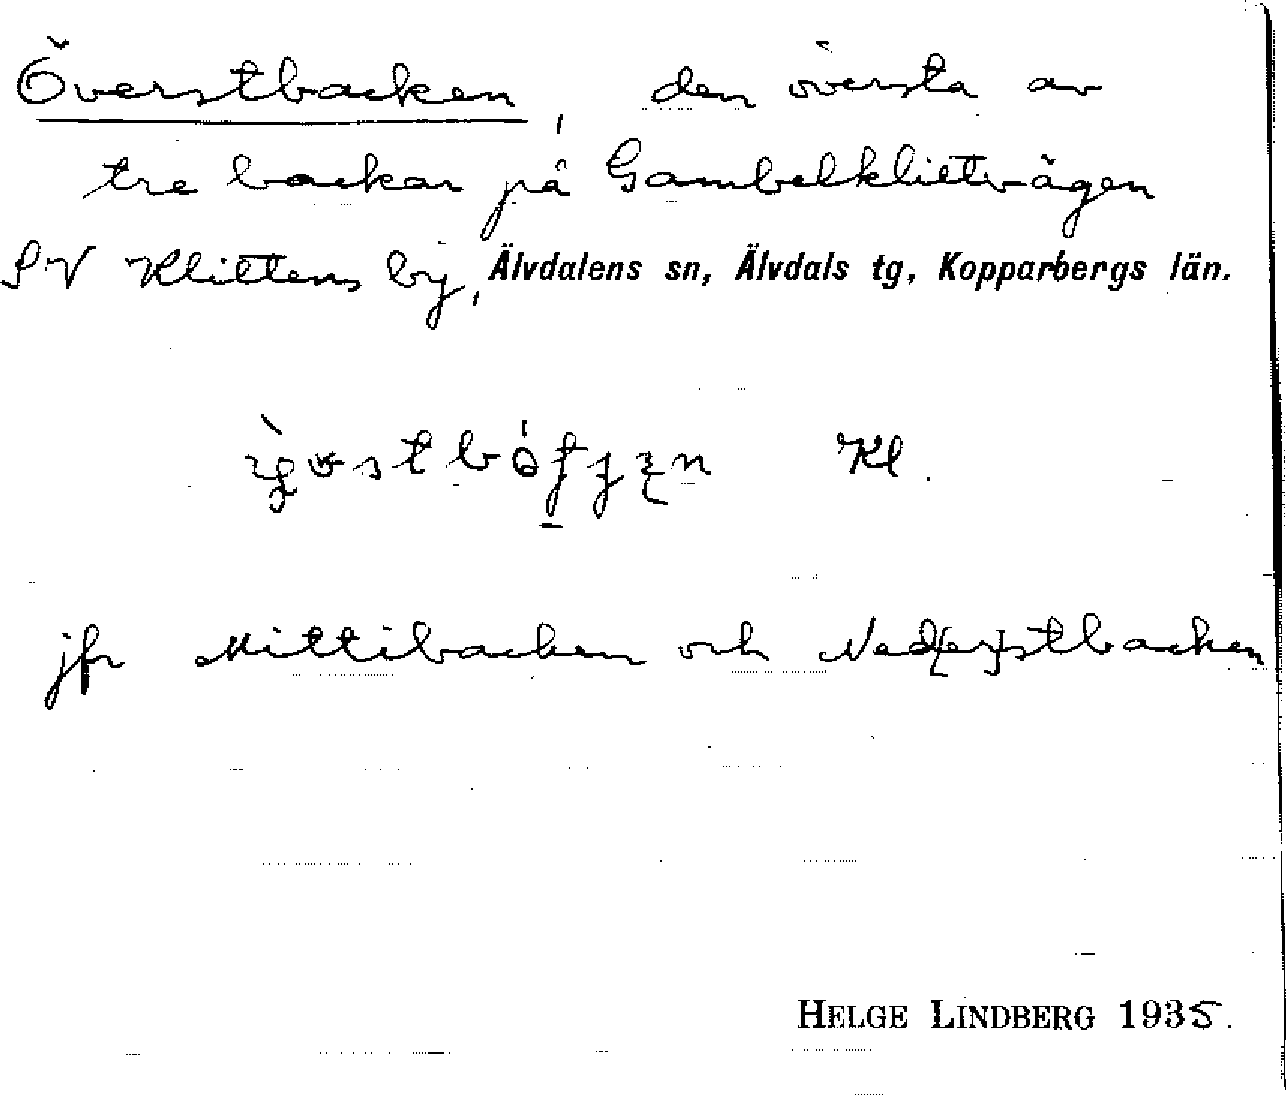 Överstbacken, den översta av
tre backar på Gambelklittvägen
SV Klittens by, Älvdalens sn, Älvdals tg, Kopparbergs län.
Kl.
jfr Mittibacken och Ned(er)stbacken
HELGE LINDBERG 1935.